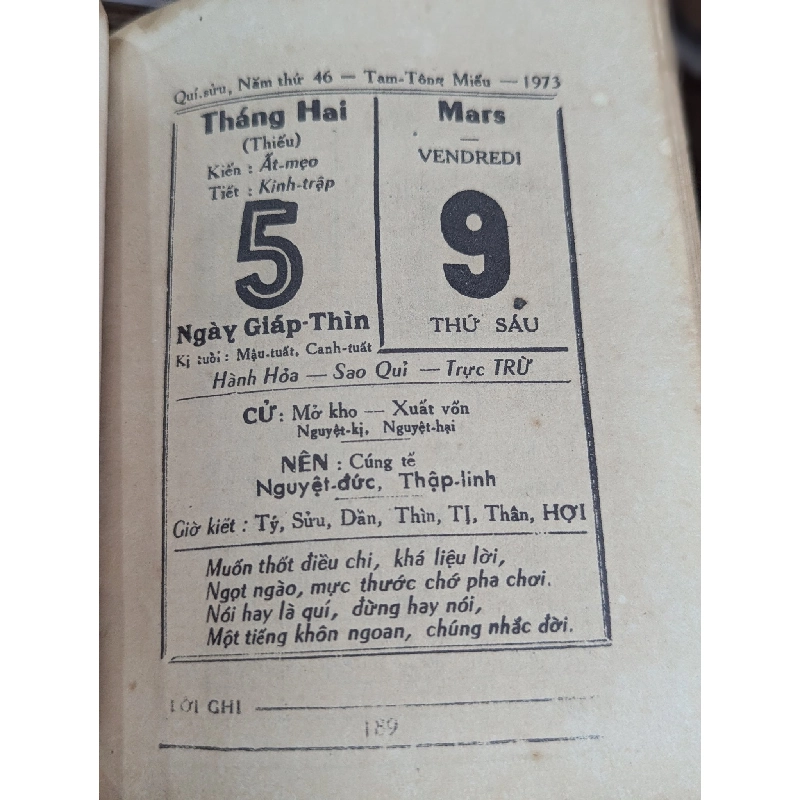 Quí.sửu, Năm thứ 46 — Tam-Tông Miếu — 1973
Tháng Hai
(Thiếu)
Kiến : Ất-mẹo
Tiết : Kinh-trập
5
Ngày Giáp-Thìn
Kị tuổi : Mậu-tuất, Canh-tuất
Mars
VENDREDI
9
THỨ SÁU
Hành Hỏa — Sao Quỉ — Trực TRỪ
CỬ: Mở kho — Xuất vốn
Nguyệt-kị, Nguyệt-hại
NÊN : Cúng tế
Nguyệt-đức, Thập-linh
Giờ kiết : Tý, Sửu, Dần, Thìn, TỊ, Thân, HỢI
Muốn thốt điều chi, khá liệu lời,
Ngọt ngào, mực thước chớ pha chơi.
Nói hay là quí, đừng hay nói,
Một tiếng khôn ngoan, chúng nhắc đời.
LỜI GHI
189